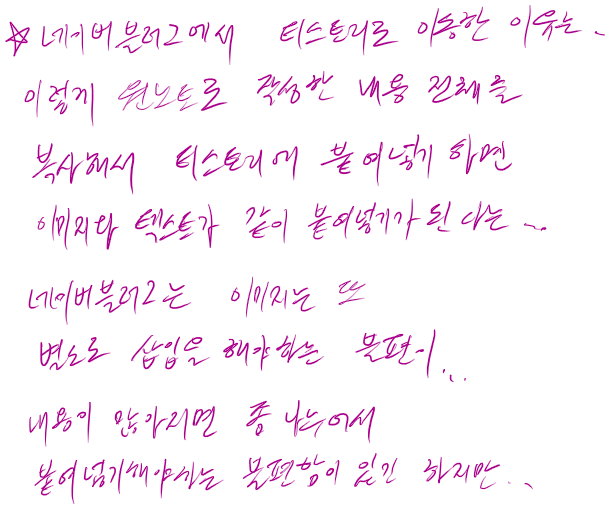 ☆ 네이버블러그에서 티스토리로 이동한 이유는..
이렇게 원노트로 작성한 내용 전체를
복사해서 티스토리에 붙여넣기 하면
이미지와 텍스트가 같이 붙여넣기가 된다는...
네이버블러그는 이미지는 또
별도로 삽입을 해야하는 불편이...
내용이 많아지면 좀 나누어서
붙여넣기해야하는 불편함이 있긴 하지만...